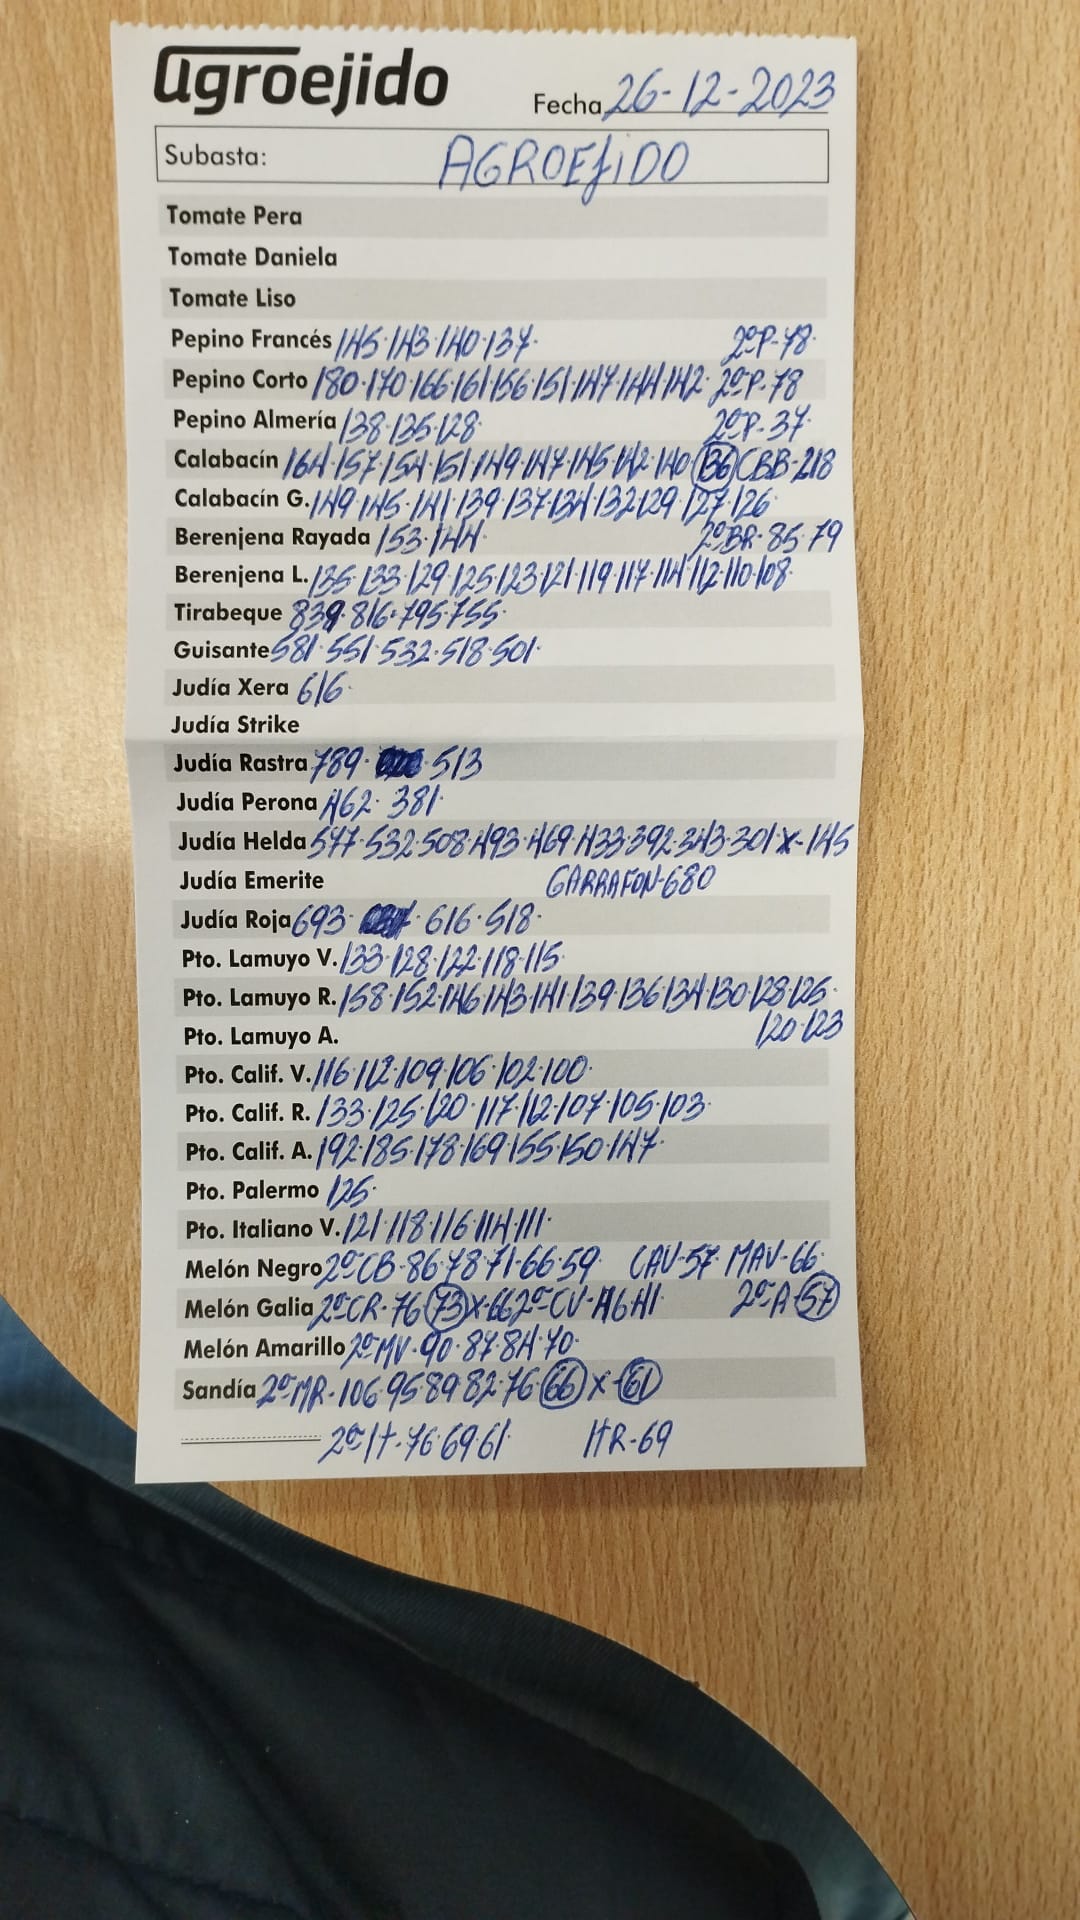 agroejido
Fecha 26-12-2023
Subasta: AGROEJIDO
Tomate Pera
Tomate Daniela
Tomate Liso
Pepino Francés 145·143·140·137· 2ªP-78·
Pepino Corto 180·170·166·161·156·151·147·144·142· 2ªP-78
Pepino Almería 138·135·128· 2ªP-37·
Calabacín 164·157·154·151·149·147·145·142·140· 136 CBB-218
Calabacín G. 149·145·141·139·137·134·132·129·127·126·
Berenjena Rayada 153·144· 2ªBR-85·79
Berenjena L. 135·133·129·125·123·121·119·117·114·112·110·108·
Tirabeque 839·816·795·755·
Guisante 581·551·532·518·501·
Judía Xera 616·
Judía Strike
Judía Rastra 789· 513
Judía Perona 462·381·
Judía Helda 577·532·508·493·469·433·392·343·301 X-145
Judía Emerite GARRAFON-680
Judía Roja 693· 616·518·
Pto. Lamuyo V. 133·128·122·118·115·
Pto. Lamuyo R. 158·152·146·143·141·139·136·134·130·128·125·
Pto. Lamuyo A. 120·123
Pto. Calif. V. 116·112·109·106·102·100·
Pto. Calif. R. 133·125·120·117·112·107·105·103·
Pto. Calif. A. 192·185·178·169·155·150·147·
Pto. Palermo 125·
Pto. Italiano V. 121·118·116·114·111·
Melón Negro 2ªCB-86·78·71·66·59· CAV-57· MAV-66·
Melón Galia 2ªCR-76·73 X-66 2ªCV-46·41· 2ªA-57
Melón Amarillo 2ªMV-90·87·84·70·
Sandía 2ªMR-106·95·89·82·76·66 X-61
2ªIt-76·69·61· ItR-69